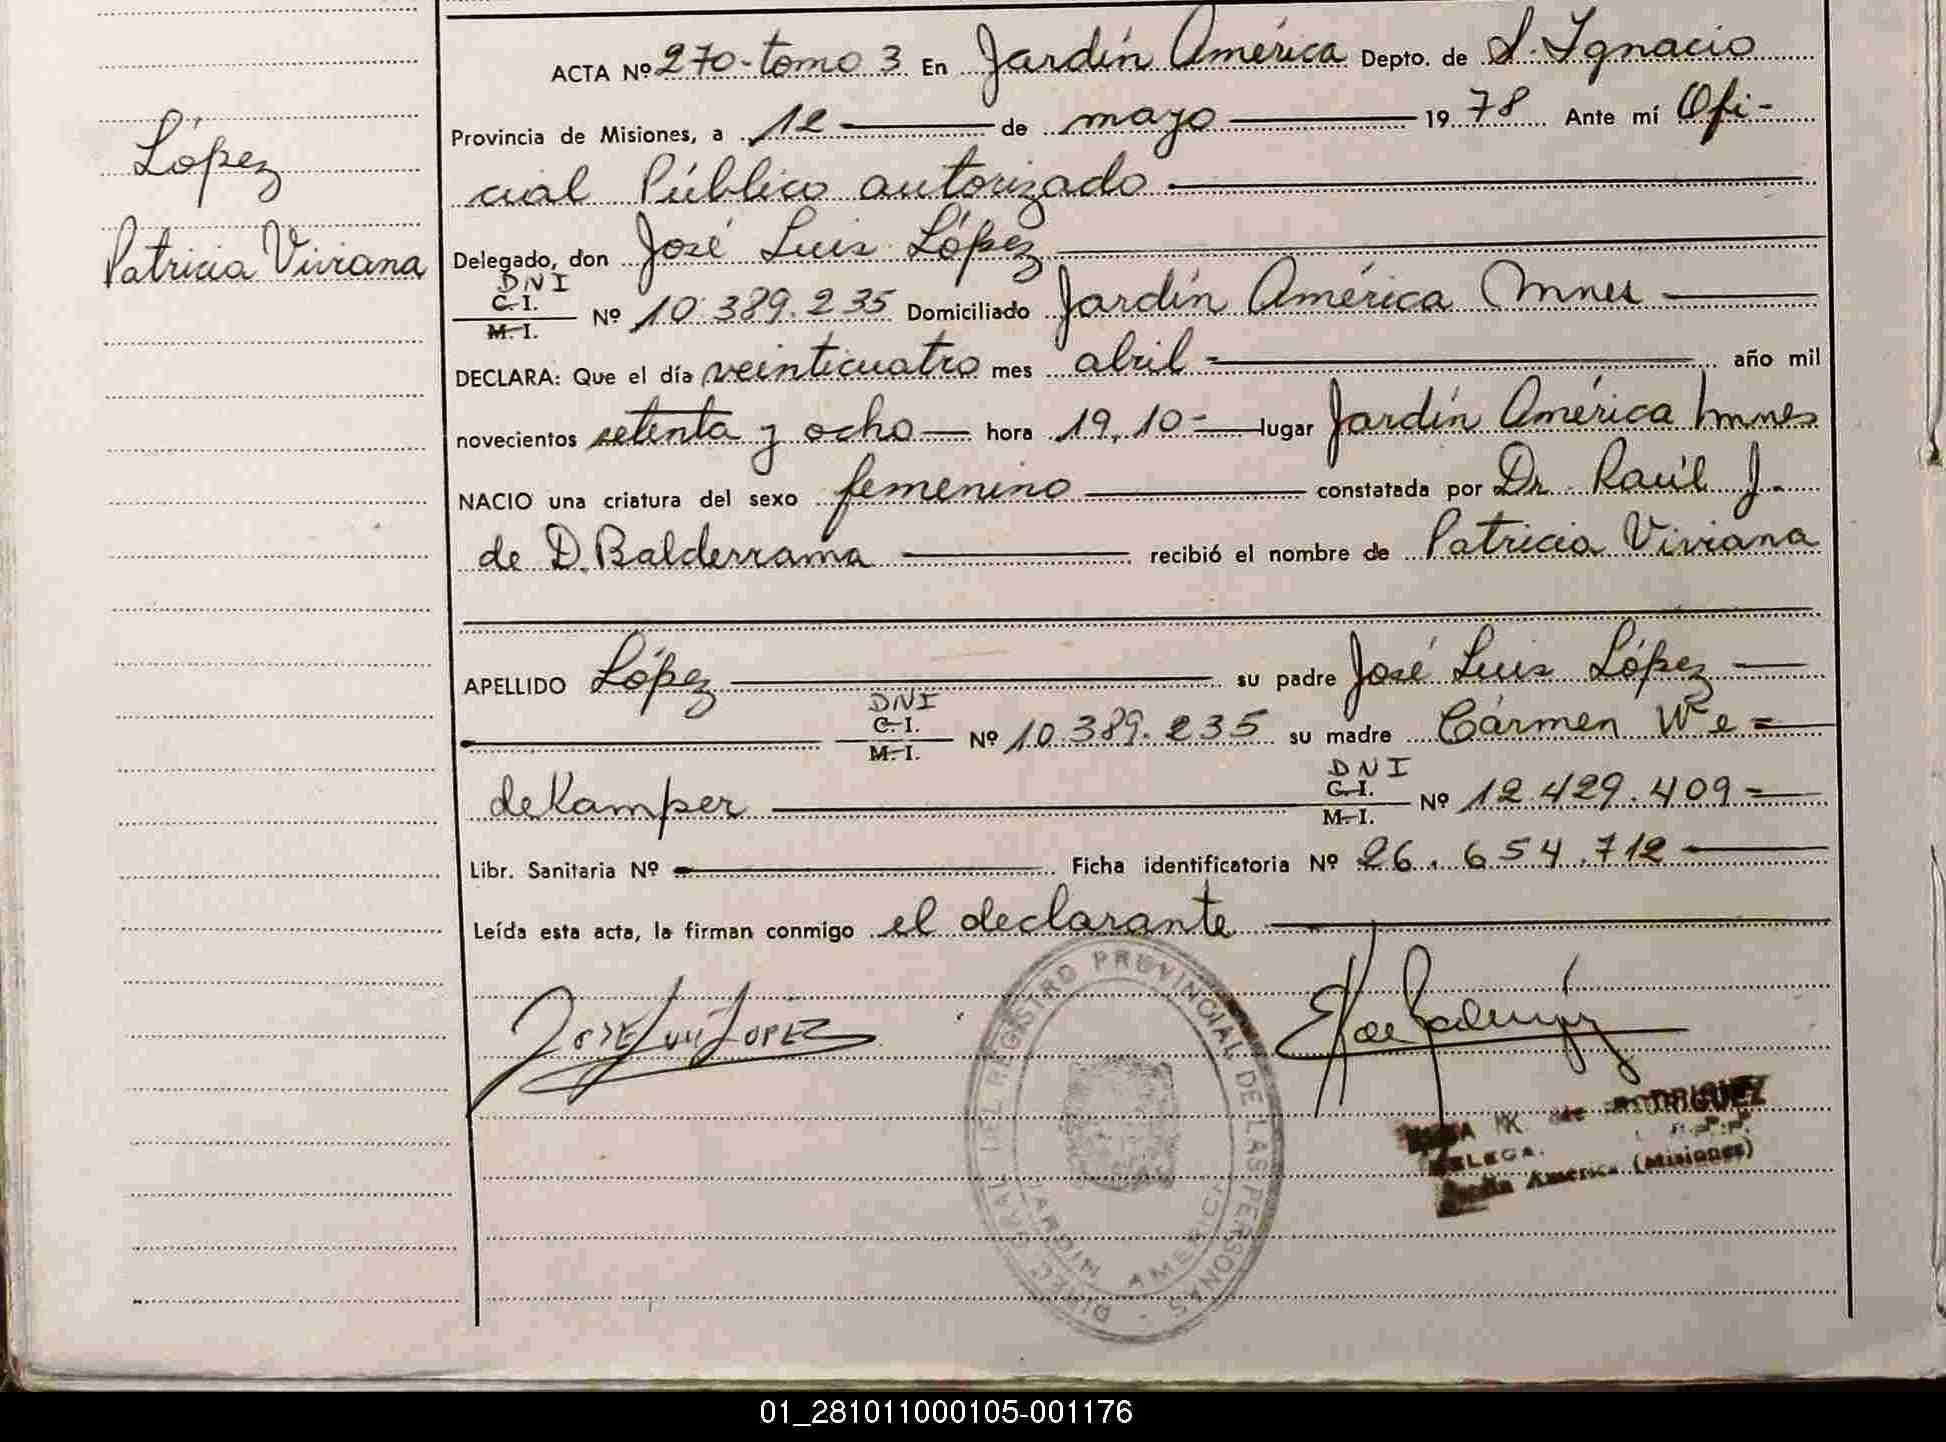 ACTA Nº 270-tomo 3 En Jardín América Depto. de S. Ignacio
Provincia de Misiones, a 12 de mayo 1978 Ante mí Ofi-
cial Público autorizado
López
Patricia Viviana
Delegado, don José Luis López
DNI
C.I.
M.I.
Nº 10.389.235 Domiciliado Jardín América Mnes
DECLARA: Que el día veinticuatro mes abril año mil
novecientos setenta y ocho hora 19,10 lugar Jardín América Mnes
NACIO una criatura del sexo femenino constatada por Dr. Raúl J.
de D. Balderrama recibió el nombre de Patricia Viviana
APELLIDO López su padre José Luis López
DNI
C.I.
M.I.
Nº 10.389.235 su madre Cármen We=
deKamper
DNI
C.I.
M.I.
Nº 12.429.409
Libr. Sanitaria Nº Ficha identificatoria Nº 26.654.712
Leída esta acta, la firman conmigo el declarante
JOSE LUIS LOPEZ
DIREC. GRAL. DEL REGISTRO PROVINCIAL DE LAS PERSONAS
JARDIN AMERICA
de RODRIGUEZ
América (Misiones)
01_281011000105-001176